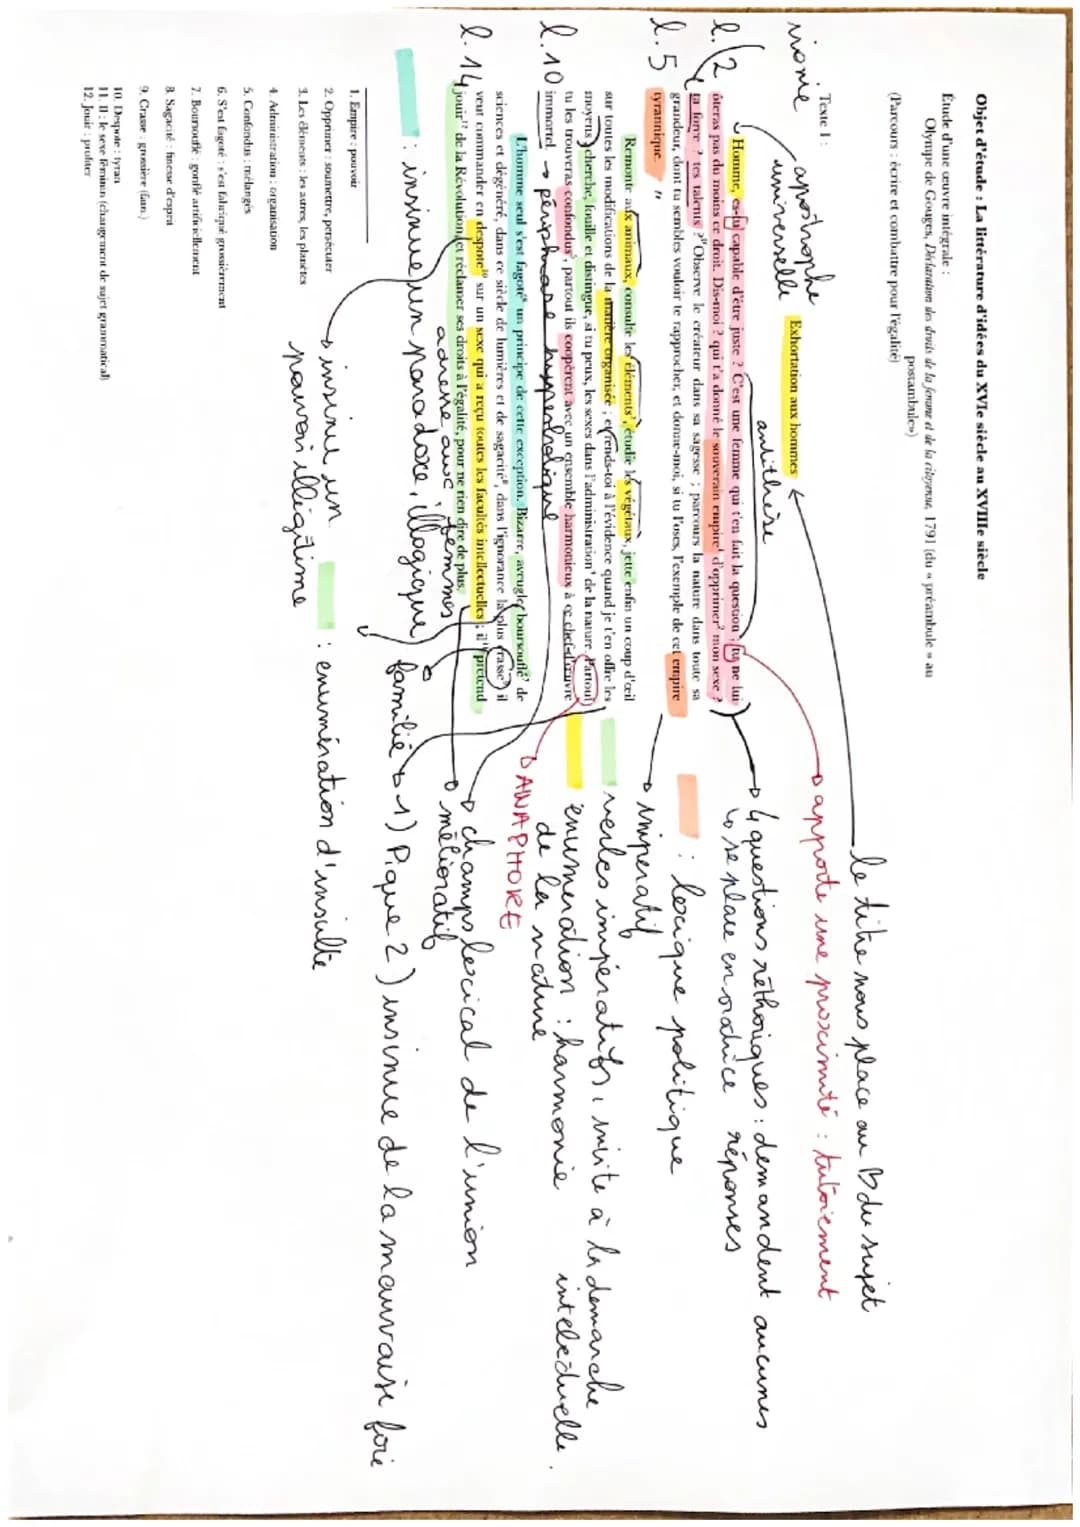 Objet d'étude : La littérature d'idées du XVIe siècle au XVIIIe siècle
Étude d'une œuvre intégrale :
Olympe de Gouges, Déclaration des droits de la femme et de la citoyenne, 1791 (du « préambule » au
postambule»)
(Parcours : écrire et combattre pour l'égalité)
le titre nous place au B du sujet
apporte une proximité : tutoiement
Texte 1 :
ironie
apostrophe
universelle
Exhortation aux hommes
antithèse
Homme, es-tu capable d'être juste ? C'est une femme qui t'en fait la question ; tu ne lui
l. 2
ôteras pas du moins ce droit. Dis-moi ? qui t'a donné le souverain empire¹ d'opprimer² mon sexe ?
ta force ? tes talents ? Observe le créateur dans sa sagesse ; parcours la nature dans toute sa
grandeur, dont tu sembles vouloir te rapprocher, et donne-moi, si tu l'oses, l'exemple de cet empire
l. 5
tyrannique.
4 questions réthoriques : demandent aucunes
réponses
↳ se place en oratrice
: lexique politique
impératif
Remonte aux animaux, consulte les éléments³, étudie les végétaux, jette enfin un coup d'œil
sur toutes les modifications de la matière organisée ; et rends-toi à l'évidence quand je t'en offre les
moyens ; cherche, fouille et distingue, si tu peux, les sexes dans l'administration⁴ de la nature. Partout
tu les trouveras confondus⁵, partout ils coopèrent avec un ensemble harmonieux à ce chef-d'œuvre
l. 10
immortel. → périphrase hyperbolique
verbes impératifs, invite à la demarche
intelectuelle.
énumération : harmonie
de la nature
ANAPHORE
L'homme seul s'est fagoté⁶ un principe de cette exception. Bizarre, aveugle, boursouflé⁷ de
sciences et dégénéré, dans ce siècle de lumières et de sagacité⁸, dans l'ignorance la plus crasse⁹, il
veut commander en despote¹⁰ sur un sexe qui a reçu toutes les facultés intellectuelles ; il¹¹ prétend
l. 14
jouir¹² de la Révolution, et réclamer ses droits à l'égalité, pour ne rien dire de plus.
champs lexical de l'union
mélioratif
adresse aux femmes
: insinue un paradoxe, illogique
familié → 1) Pique 2) insinue de la mauvaise foie
→ insinue un
pouvoir illégitime
: enumération d'insulte
1. Empire : pouvoir
2. Opprimer : soumettre, persécuter
3. Les éléments : les astres, les planètes
4. Administration : organisation
5. Confondus : mélangés
6. S'est fagoté : s'est fabriqué grossièrement
7. Boursouflé : gonflé artificiellement
8. Sagacité : finesse d'esprit
9. Crasse : grossière (fam.)
10. Despote : tyran
11. Il : le sexe féminin (changement de sujet grammatical)
12. Jouir : profiter